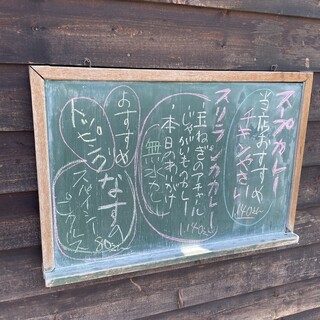 スープカレー
当店おすすめ
チキンやさい
1,140yen
スリランカカレー
・玉ねぎのアチャール
・じゃがいものカレー
・本日のおかけ
無水カレー
1,140yen
おすすめ
トッピング
なす
スパイシー
ピクルス